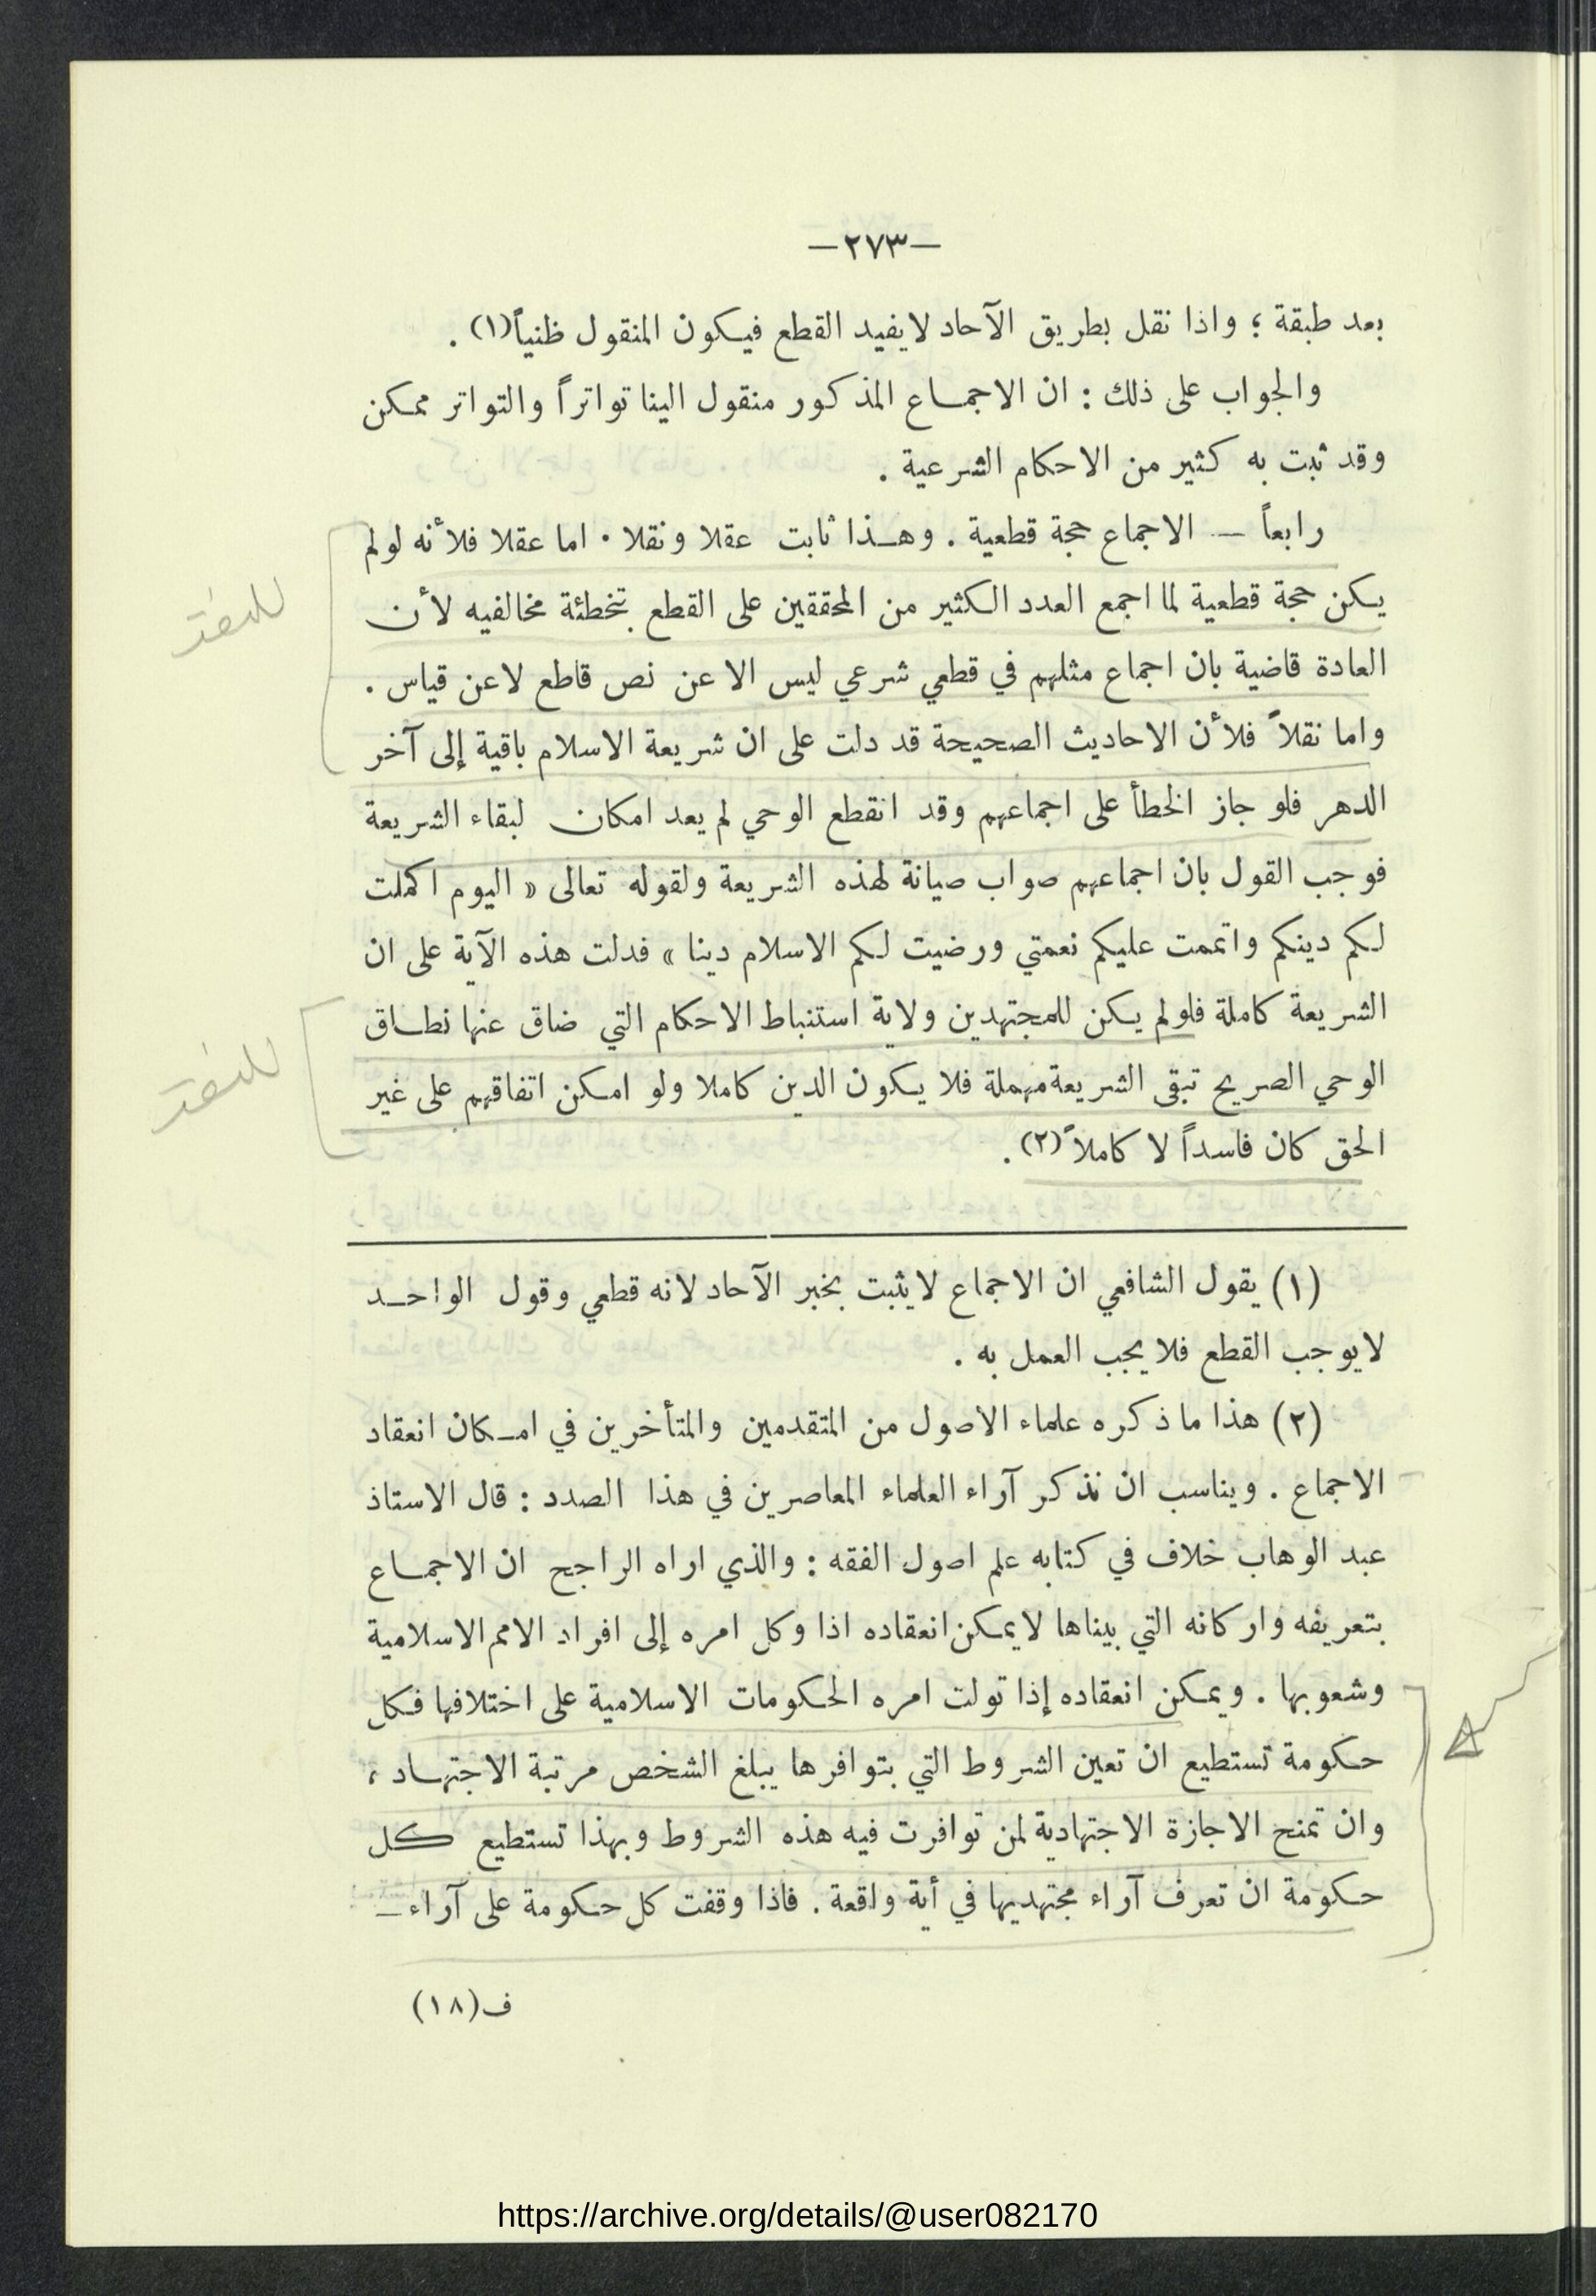 —٢٧٣—
بعد طبقة ؛ واذا نقل بطريق الآحاد لايفيد القطع فيكون المنقول ظنياً(١) .
والجواب على ذلك : ان الاجماع المذكور منقول الينا تواتراً والتواتر ممكن
وقد ثبت به كثير من الاحكام الشرعية .
رابعاً — الاجماع حجة قطعية . وهذا ثابت عقلا ونقلا . اما عقلا فلأنه لولم
يكن حجة قطعية لما اجمع العدد الكثير من المحققين على القطع بتخطئة مخالفيه لأن
العادة قاضية بان اجماع مثلهم في قطعي شرعي ليس الا عن نص قاطع لاعن قياس .
واما نقلاً فلأن الاحاديث الصحيحة قد دلت على ان شريعة الاسلام باقية إلى آخر
الدهر فلو جاز الخطأ على اجماعهم وقد انقطع الوحي لم يعد امكان لبقاء الشريعة
فوجب القول بان اجماعهم صواب صيانة لهذه الشريعة ولقوله تعالى « اليوم اكملت
لكم دينكم واتممت عليكم نعمتي ورضيت لكم الاسلام دينا » فدلت هذه الآية على ان
الشريعة كاملة فلولم يكن للمجتهدين ولاية استنباط الاحكام التي ضاق عنها نطاق
الوحي الصريح تبقى الشريعة مهملة فلا يكون الدين كاملا ولو امكن اتفاقهم على غير
الحق كان فاسداً لا كاملاً (٢) .
(١) يقول الشافعي ان الاجماع لايثبت بخبر الآحاد لانه قطعي وقول الواحد
لايوجب القطع فلا يجب العمل به .
(٢) هذا ماذكره علماء الاصول من المتقدمين والمتأخرين في امكان انعقاد
الاجماع . ويناسب ان نذكر آراء العلماء المعاصرين في هذا الصدد : قال الاستاذ
عبد الوهاب خلاف في كتابه علم اصول الفقه : والذي اراه الراجح ان الاجماع
بتعريفه واركانه التي بيناها لايمكن انعقاده اذا وكل امره إلى افراد الامم الاسلامية
وشعوبها . ويمكن انعقاده إذا تولت امره الحكومات الاسلامية على اختلافها فكل
حكومة تستطيع ان تعين الشروط التي بتوافرها يبلغ الشخص مرتبة الاجتهاد ،
وان تمنح الاجازة الاجتهادية لمن توافرت فيه هذه الشروط وبهذا تستطيع كل
حكومة ان تعرف آراء مجتهديها في أية واقعة . فاذا وقفت كل حكومة على آراء —
ف(١٨)
https://archive.org/details/@user082170